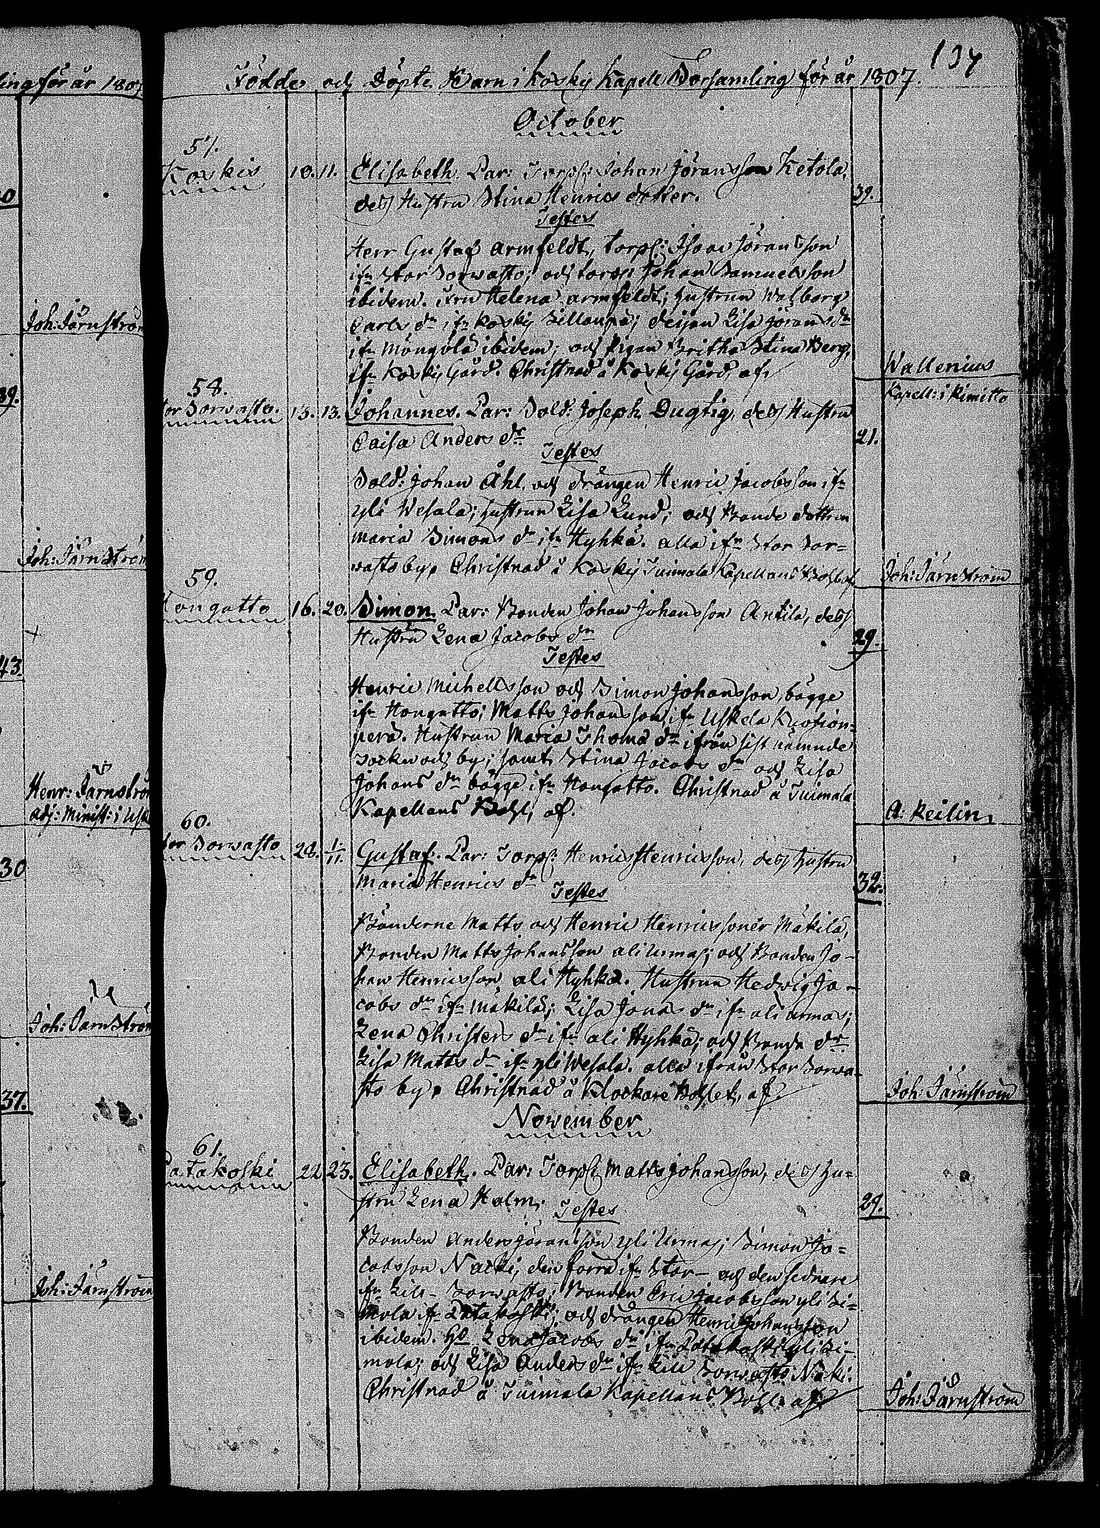 137
ling för år 1807
Födde och Döpte Barn i Koskj Kapell Församling för år 1807.
October
57.
Koskis 10. 11. Elisabeth. Par: Torp: Johan Jöransson Ketola,
dess Hustru Stina Henrics dotter. 39.
Testes
Herr Gustaf Armfeldt, torp: Isaac Jöransson
ifr Stor Sorvasto; och torp: Johan Samuelsson
ibidem. Fru Helena Armfeldt; hustrun Walborg
Carls dr ifr Koskj; Lisa Jörans dr
ifr ibidem; och pigan Britha Stina Berg,
ifr Koskj Gård. Christnad å Koskj Gård, af
Wallenius
Kapell: i Kimitto
58.
tor Sorvasto. 13. 13. Johannes. Par: Sold: Joseph Dugtig, dess Hustru
Caisa Anders dr 21.
Testes
Sold: Johan Åhl, och drängen Henric Jacobsson ifr
yli Wesala; hustrun Lisa Lund; och Bonde dottren
Maria Simons dr ifr Hyhkä. alla ifr Stor Sor=
vasto by, Christnad å Koskj Tuimala Kapellans Bohl af
Joh: Järnström
59.
Hongatto 16. 20. Simon. Par: Bonden Johan Johansson Antila, dess
Hustru Lena Jacobs dr 29.
Testes
Henric Michellsson och Simon Johansson, bägge
ifr Hongatto; Matts Johansson ifr Uskela
perä. Hustrun Maria Thoma dr ifrån sist nämnde
Sockn och by; samt Stina Jacobs dr och Lisa
Johans dr bägge ifr Hongatto. Christnad å Tuimala
Kapellans Bohl, af.
A. Reilin,
60.
tor Sorvasto 28. 1/11. Gustaf. Par: Torp: Henric Henricsson, dess hustru
Maria Henrics dr 32.
Testes
Bönderne Matts och Henric Henricssoner Mäkilä,
Bonden Matts Johansson ali Urmas; och Bonden Jo-
han Henricsson ali Hyhkä. Hustrun Hedvig Ja-
cobs dr ifr Mäkilä; Lisa Jonas dr ifr ali Urmas;
Lena Christers dr ifr ali Hyhkä; och Bonde dr
Lisa Matts dr ifr yli Wesala. alla ifrån Stor Sorva-
sto by, Christnad å Klockare Bohlet, af
Joh: Järnström
November
61.
Patakoski 22. 23. Elisabeth. Par: Torp: Matts Johansson, dess Hu-
stru Lena Holm. 29.
Testes
Bonden Anders Jöransson yli Urmas; Simon Ja-
cobsson Näcki, den förra ifr Stor- och den sednare
ifr Lill- Sorvasto; Bonden Eric Jacobsson yli Si-
mola ifr Patakoski, och drängen Henric Johansson
ibidem. Lena Jacobs dr ifr Patakoski yli Si-
mola; och Lisa Anders dr ifr Lill Sorvasto Näki.
Christnad å Tuimala Kapellans Bohl. af
Joh: Järnström
Joh: Järnström
39.
Joh: Järnström
43.
Henr: Järnström
adj: Minist: i Usk
30
Joh: Järnström
37.
Joh: Järnström